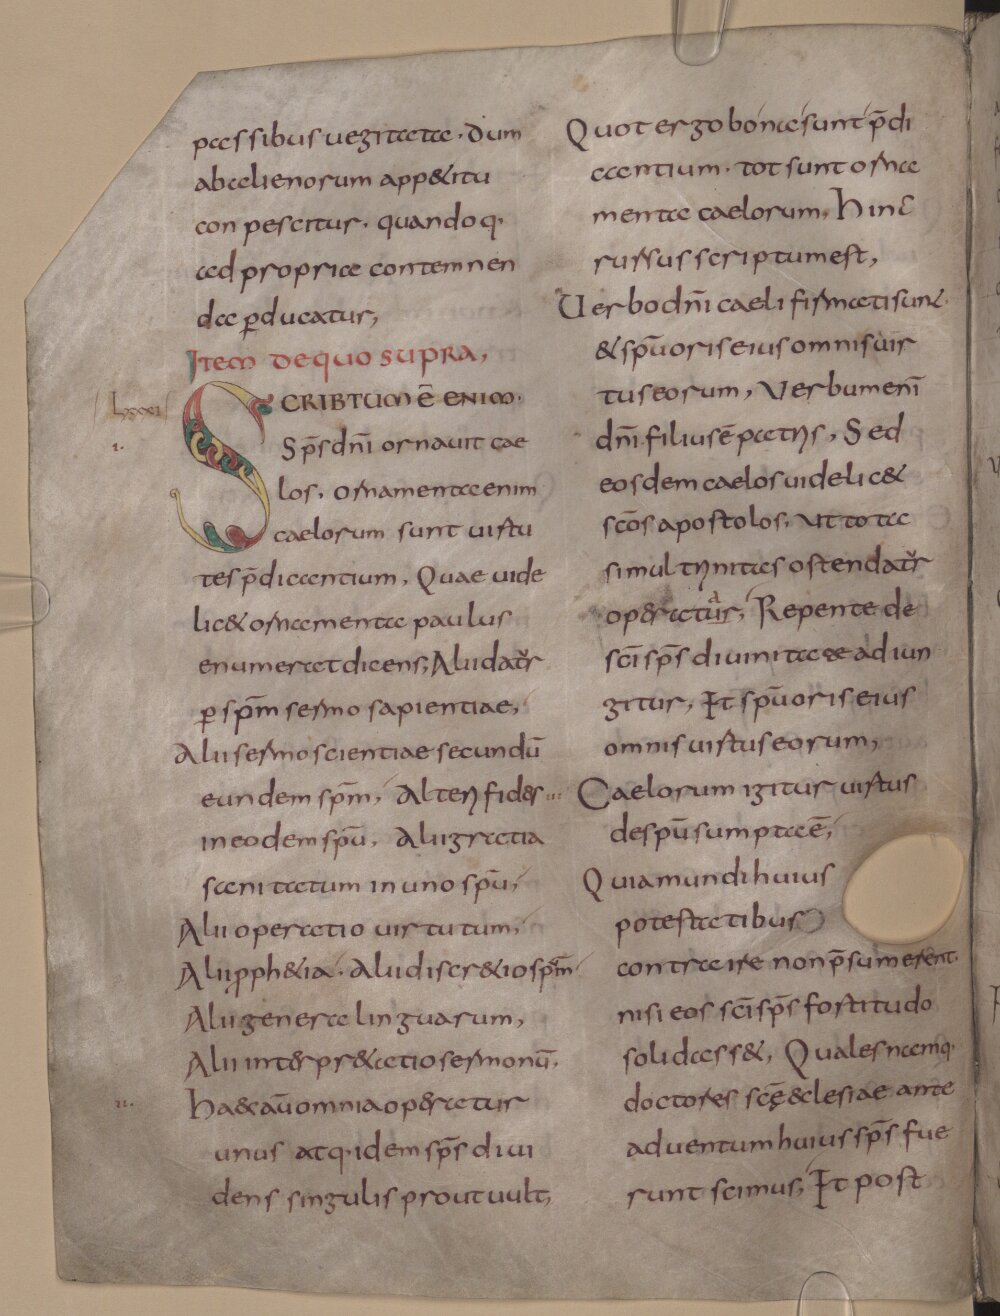 passibus uegitata · Dum
ab alienorum app&itu
conpescitur · quandoq·
ad propria contemnen
da p̄ducatur;
Item de quo supra,
SCRIBTUM Ē ENIM·
Sp̄s dn̄i ornauit cae
los, ornamenta enim
caelorum sunt uirtu
tes p̄dicantium, Quae uide
lic& ornamenta paulus
enumerat dicens; Alii dat̆r
p̄ sp̄m sermo sapientiae,
Alii sermo scientiae secundū
eundem sp̄m, Alteri fides
in eodem sp̄u, Alii gratia
sanitatum in uno sp̄u,
Alii operatio uirtutum,
Alii pph&ia · Alii discr&io sp̄m
Alii genera linguarum,
Alii interpr&atio sermonū,
ii.
Haec aū omnia operatur
unus atq· idem sp̄s diui
dens singulis prout uult,
Quot ergo bona sunt p̄di
cantium · tot sunt orna
menta caelorum, Hinc
rursus scriptum est,
Uerbo dn̄i caeli firmati sunt
& sp̄u oris eius omnis uir
tus eorum, Uerbum enī
dn̄i filius ē patris, Sed
eosdem caelos uidelic&
scōs apostolos, ut tota
simul trinitas ostendat̆r
operatur, Repente de
scī sp̄s diuinitate adiun
gitur, Et sp̄u oris eius
omnis uirtus eorum,
Caelorum igitur uirtus
de sp̄u sumpta ē,
Quia mundi huius
potestatibus
contraire non p̄sumerent
nisi eos scī sp̄s fortitudo
solidass&, Quales namq·
doctores scę̄ ecclesiae ante
aduentum huius sp̄s fue
runt scimus, Et post